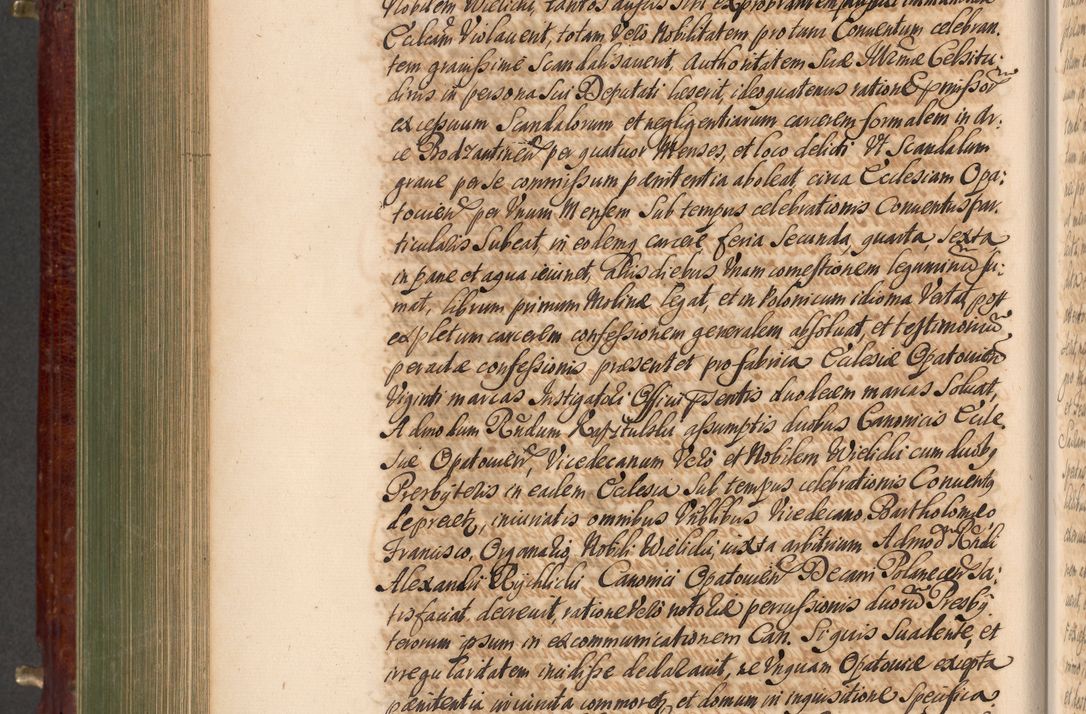 Nobilem Wielicki, tantos ausus sibi exprobrantem, pugnae immanitate
Eccliam Violauerit, totam Vero Nobilitatem pro tunc Conuentum celebran:
tem grauissime Scandalisauerit, Authoritatem Suae Illmae Celsitu:
dinis in persona Sui Deputati laeserit, ideo quatenus ratione pmissor
excessuum Scandalorum et negligentiarum carcerem formalem in Ar:
ce Bodzantinen per quatuor Menses, et loco delicti Vt Scandalum
graue per se commissum paenitentia aboleat, circa Ecclesiam Opa:
touien per Vnum Mensem Sub tempus celebrationis Conuentus par:
ticularis Subeat, in eodemq carcere feria Secunda, quarta, Sexta
in pane et aqua ieiunet, Aliis diebus Vnam comestionem leguminu su:
mat, librum primum Molinae legat, et in Polonicum idioma Vertat, post
expletum carcerem confessionem generalem absoluat, et testimoniu
peractae confessionis praesentet pro fabrica Ecclesiae Opatouien
Viginti marcas Instigatori Officii psentis duodecem marcas Soluat,
Admodum Rndum Kapitulski assumptis duobus Canonicis Eccle
siae Opatouien, Vicedecanum Vero et Nobilem Wielicki cum duobq
Presbyteris in eadem Ecclesia Sub tempus celebrationis Conuentq
depraecetq, iniuriatis omnibus Vtilibus Vicedecano Bartholomeo
Francisco, Organario, Nobili Wielicki, iuxta arbitrium Admod Rndi
Alexandri Rychlicki Canonici Opatouien Decani Polanecen Sa:
tisfaciat decreuit, ratione Vero notoriae percussionis duoru Presby
terorum ipsum in excommunicationem Can. Si quis Suadente, et
irregularitatem incidisse declarauit, ne Vnquam Opatouiae excepta
paenitentia iniuncta commoretq et domum in inquisitione Specifica